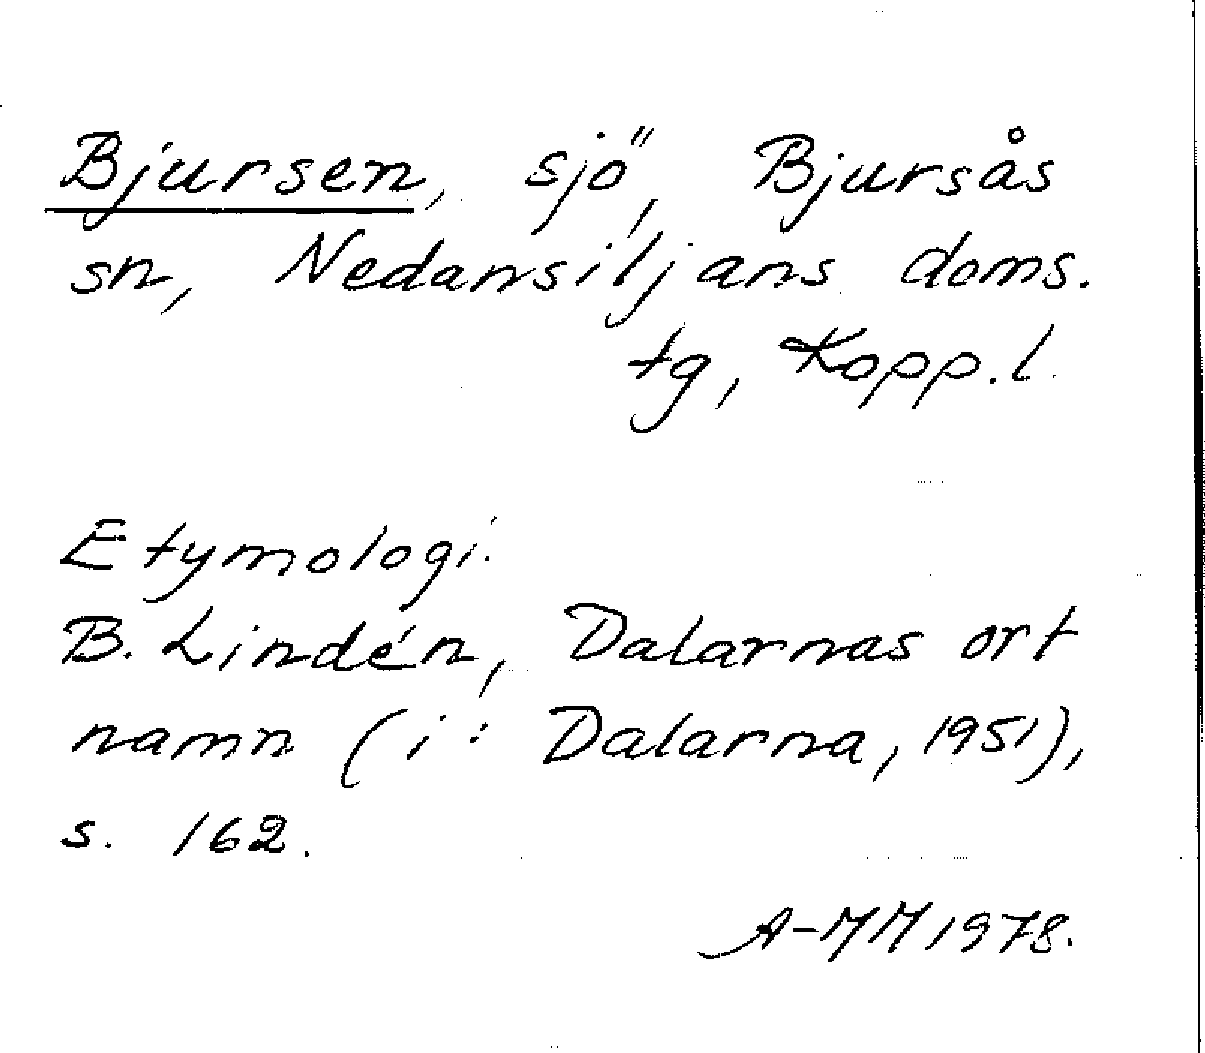 Bjursen, sjö, Bjursås
sn, Nedansiljans doms.
tg, Kopp.l.
Etymologi.
B. Lindén, Dalarnas ort
namn (i: Dalarna, 1951),
s. 162.
A-MM 1978.